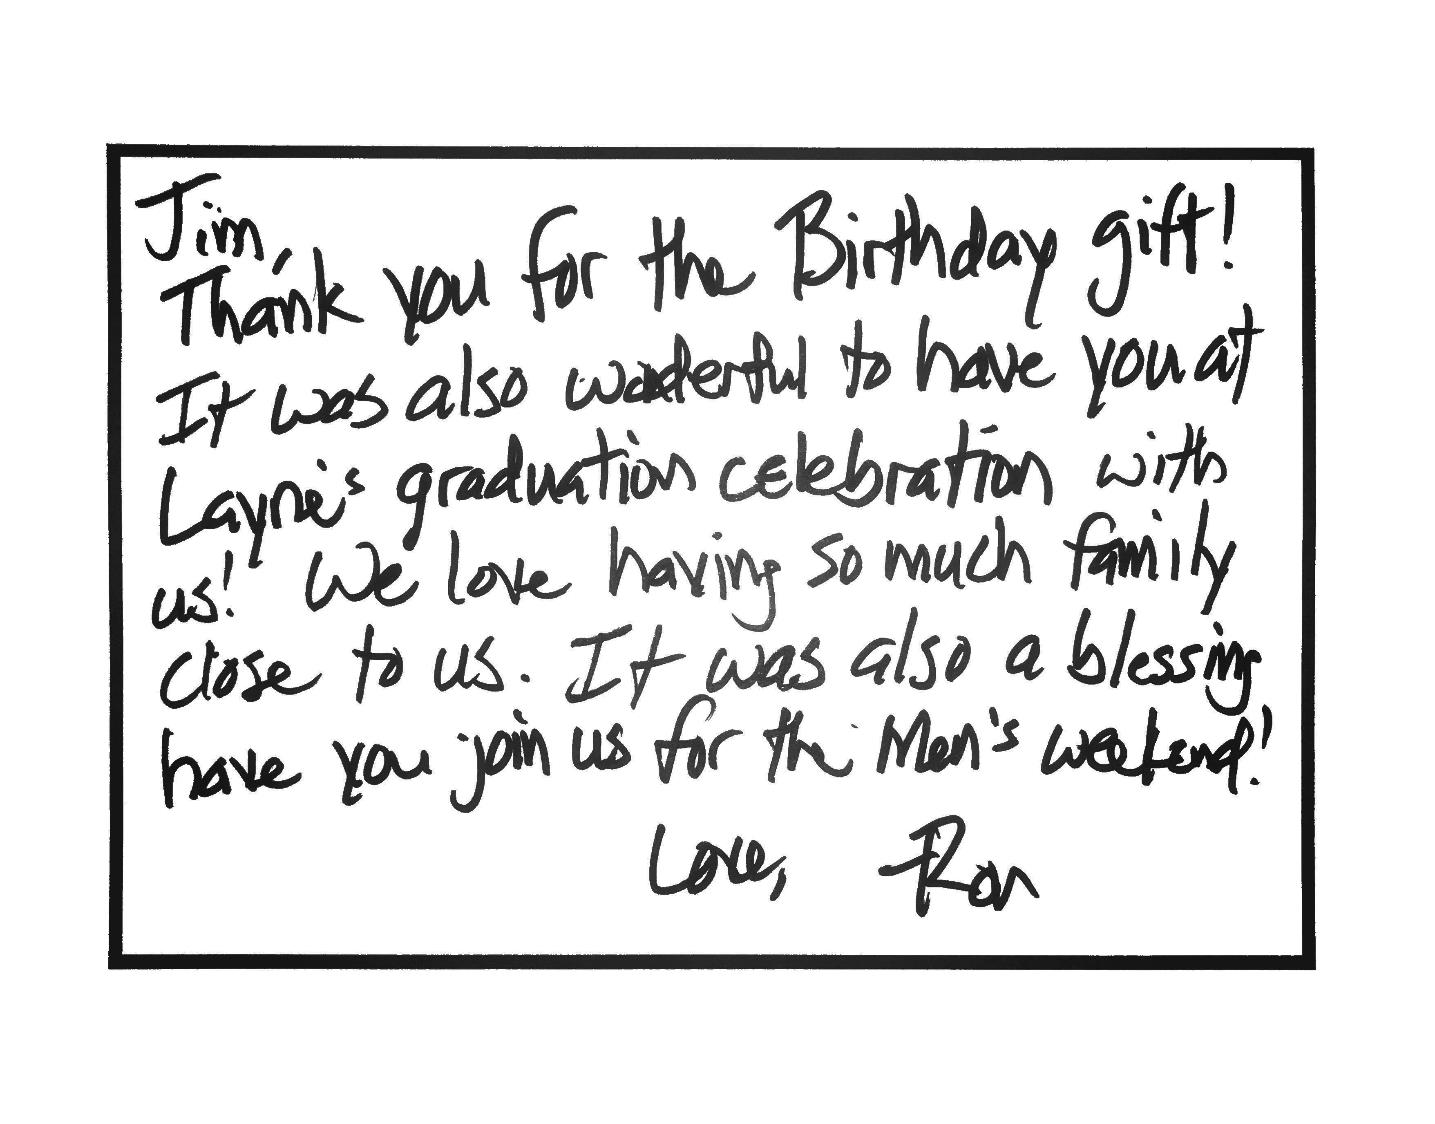 Jim,
Thank you for the Birthday gift!
It was also wonderful to have you at
Layne's graduation celebration with
us! We love having so much family
close to us. It was also a blessing
have you join us for the Men's weekend!
Love, Ron